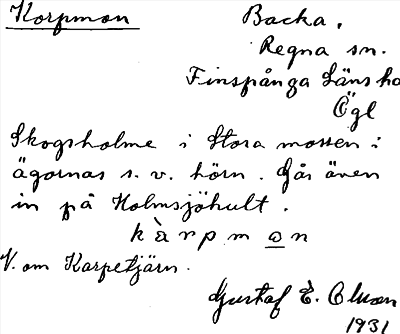 Korpmon
Backa.
Regna sn.
Finspånga Länshd
Ögl
Skogsholme i Stora mossen i
ägornas s. v. hörn. Går även
in på Holmsjöhult.
kàrpmon
V. om Karpetjärn.
Gustaf E. Olson
1931